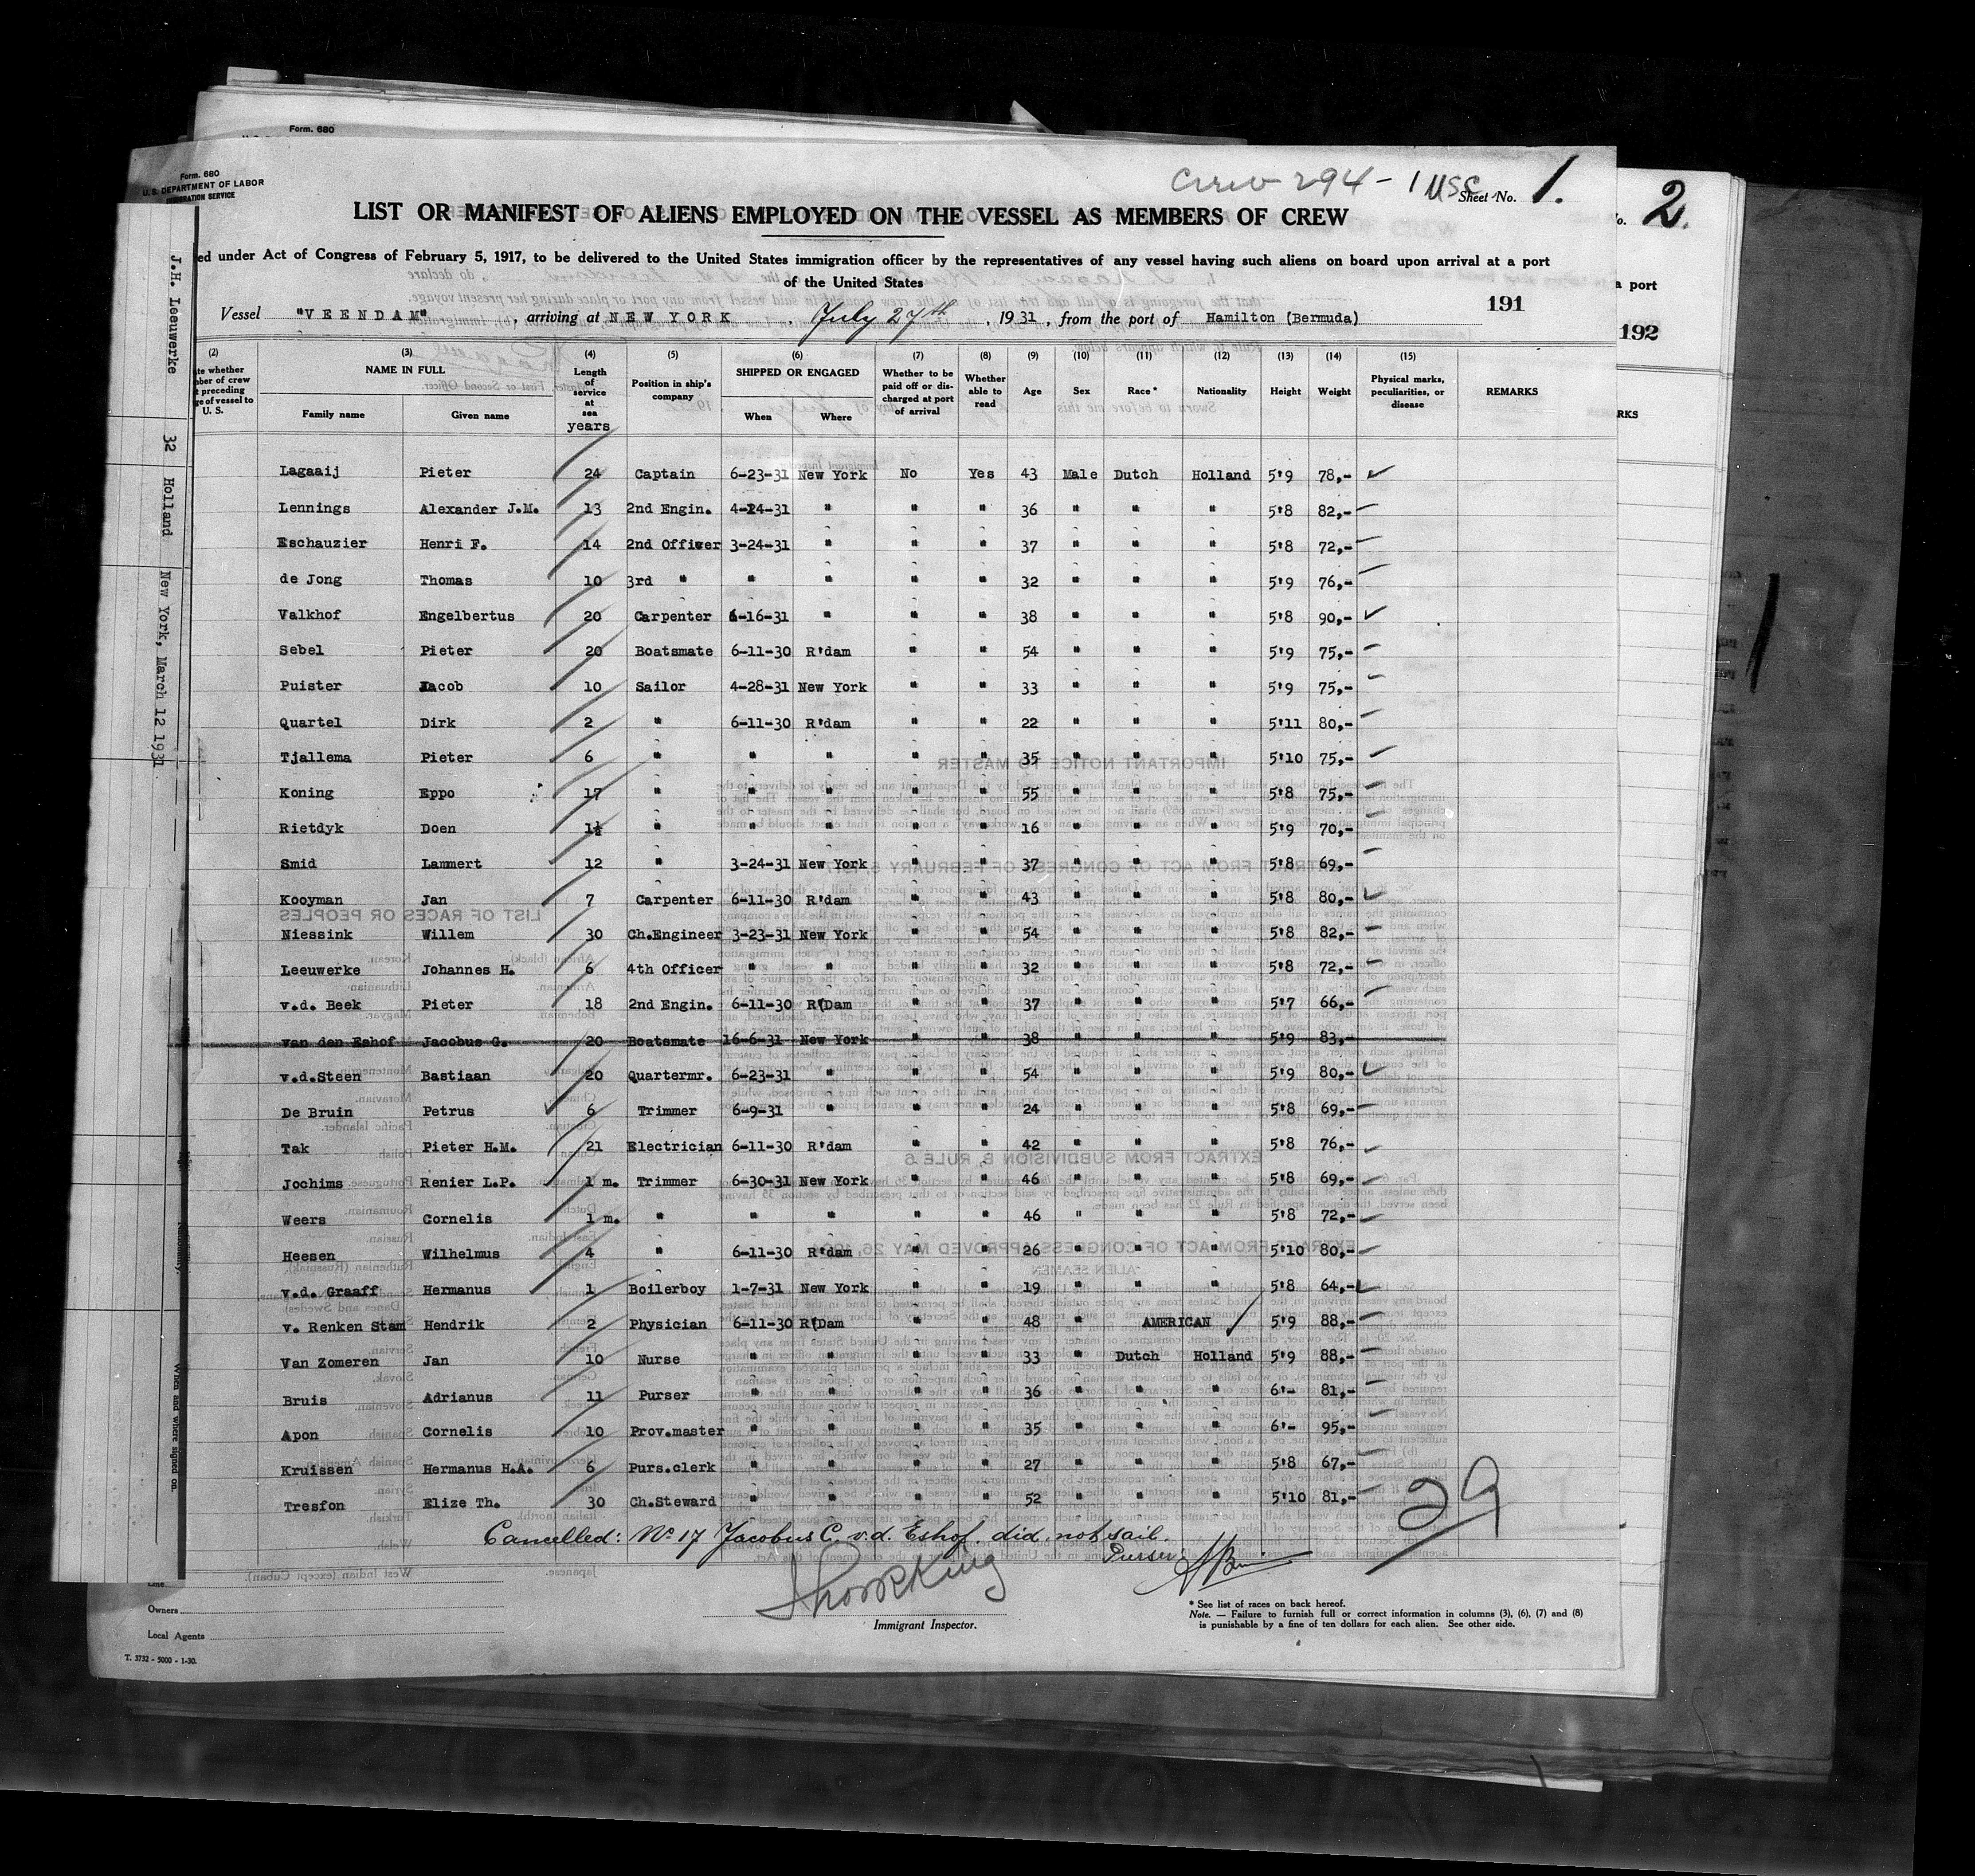 Form. 680
Form. 680
U.S. DEPARTMENT OF LABOR
IMMIGRATION SERVICE
Crew 294 - 1 USC
Sheet No. 1.
2.
LIST OR MANIFEST OF ALIENS EMPLOYED ON THE VESSEL AS MEMBERS OF CREW
ed under Act of Congress of February 5, 1917, to be delivered to the United States immigration officer by the representatives of any vessel having such aliens on board upon arrival at a port
of the United States
a port
Vessel "VEENDAM", arriving at NEW YORK, July 27th, 1931, from the port of Hamilton (Bermuda)
191
192
(2) (3) (4) (5) (6) (7) (8) (9) (10) (11) (12) (13) (14) (15)
whether
ber of crew
preceding
ge of vessel to
U. S.
NAME IN FULL
Family name Given name
Length of service at sea years
Position in ship's company
SHIPPED OR ENGAGED
When Where
Whether to be paid off or discharged at port of arrival
Whether able to read
Age Sex Race* Nationality Height Weight
Physical marks, peculiarities, or disease
REMARKS
RKS
Lagaaij Pieter 24 Captain 6-23-31 New York No Yes 43 Male Dutch Holland 5'9 78,-
Lennings Alexander J.M. 13 2nd Engin. 4-24-31 " " " 36 " " " 5'8 82,-
Eschauzier Henri F. 14 2nd Officer 3-24-31 " " " 37 " " " 5'8 72,-
de Jong Thomas 10 3rd " " " " " 32 " " " 5'9 76,-
Valkhof Engelbertus 20 Carpenter 6-16-31 " " " 38 " " " 5'8 90,-
Sebel Pieter 20 Boatsmate 6-11-30 R'dam " " 54 " " " 5'9 75,-
Puister Jacob 10 Sailor 4-28-31 New York " " 33 " " " 5'9 75,-
Quartel Dirk 2 " 6-11-30 R'dam " " 22 " " " 5'11 80,-
Tjallema Pieter 6 " " " " " 35 " " " 5'10 75,-
Koning Eppo 17 " " " " " 55 " " " 5'8 75,-
Rietdyk Doen 1½ " " " " " 16 " " " 5'9 70,-
Smid Lammert 12 " 3-24-31 New York " " 37 " " " 5'8 69,-
Kooyman Jan 7 Carpenter 6-11-30 R'dam " " 43 " " " 5'8 80,-
Niessink Willem 30 Ch.Engineer 3-23-31 New York " " 54 " " " 5'8 82,-
Leeuwerke Johannes H. 6 4th Officer " " " " 32 " " " 5'8 72,-
v.d. Beek Pieter 18 2nd Engin. 6-11-30 R'Dam " " 37 " " " 5'7 66,-
van den Eshof Jacobus G. 20 Boatsmate 16-6-31 New York " " 38 " " " 5'9 83,-
v.d.Steen Bastiaan 20 Quartermr. 6-23-31 " " " 54 " " " 5'9 80,-
De Bruin Petrus 6 Trimmer 6-9-31 " " " 24 " " " 5'8 69,-
Tak Pieter H.M. 21 Electrician 6-11-30 R'dam " " 42 " " " 5'8 76,-
Jochims Renier L.P. 1 m. Trimmer 6-30-31 New York " " 46 " " " 5'8 69,-
Weers Cornelis 1 m. " " " " " 46 " " " 5'8 72,-
Heesen Wilhelmus 4 " 6-11-30 R'dam " " 26 " " " 5'10 80,-
v.d. Graaff Hermanus 1 Boilerboy 1-7-31 New York " " 19 " " " 5'8 64,-
v. Renken Stam Hendrik 2 Physician 6-11-30 R'Dam " " 48 " AMERICAN 5'9 88,-
Van Zomeren Jan 10 Nurse " " " " 33 " Dutch Holland 5'9 88,-
Bruis Adrianus 11 Purser " " " " 36 " " " 6'- 81,-
Apon Cornelis 10 Prov.master " " " " 35 " " " 6'- 95,-
Kruissen Hermanus H.A. 6 Purs.clerk " " " " 27 " " " 5'8 67,-
Tresfon Elize Th. 30 Ch.Steward " " " " 52 " " " 5'10 81,-
29
Cancelled: No 17 Jacobus C. v.d. Eshof. did not sail.
Purser
Immigrant Inspector.
* See list of races on back hereof.
Note. — Failure to furnish full or correct information in columns (3), (6), (7) and (8)
is punishable by a fine of ten dollars for each alien. See other side.
Line
Owners
Local Agents
T. 3732 - 5000 - 1-30.
J.H. Leeuwerke 32 Holland New York, March 12 1931
When and where signed on.